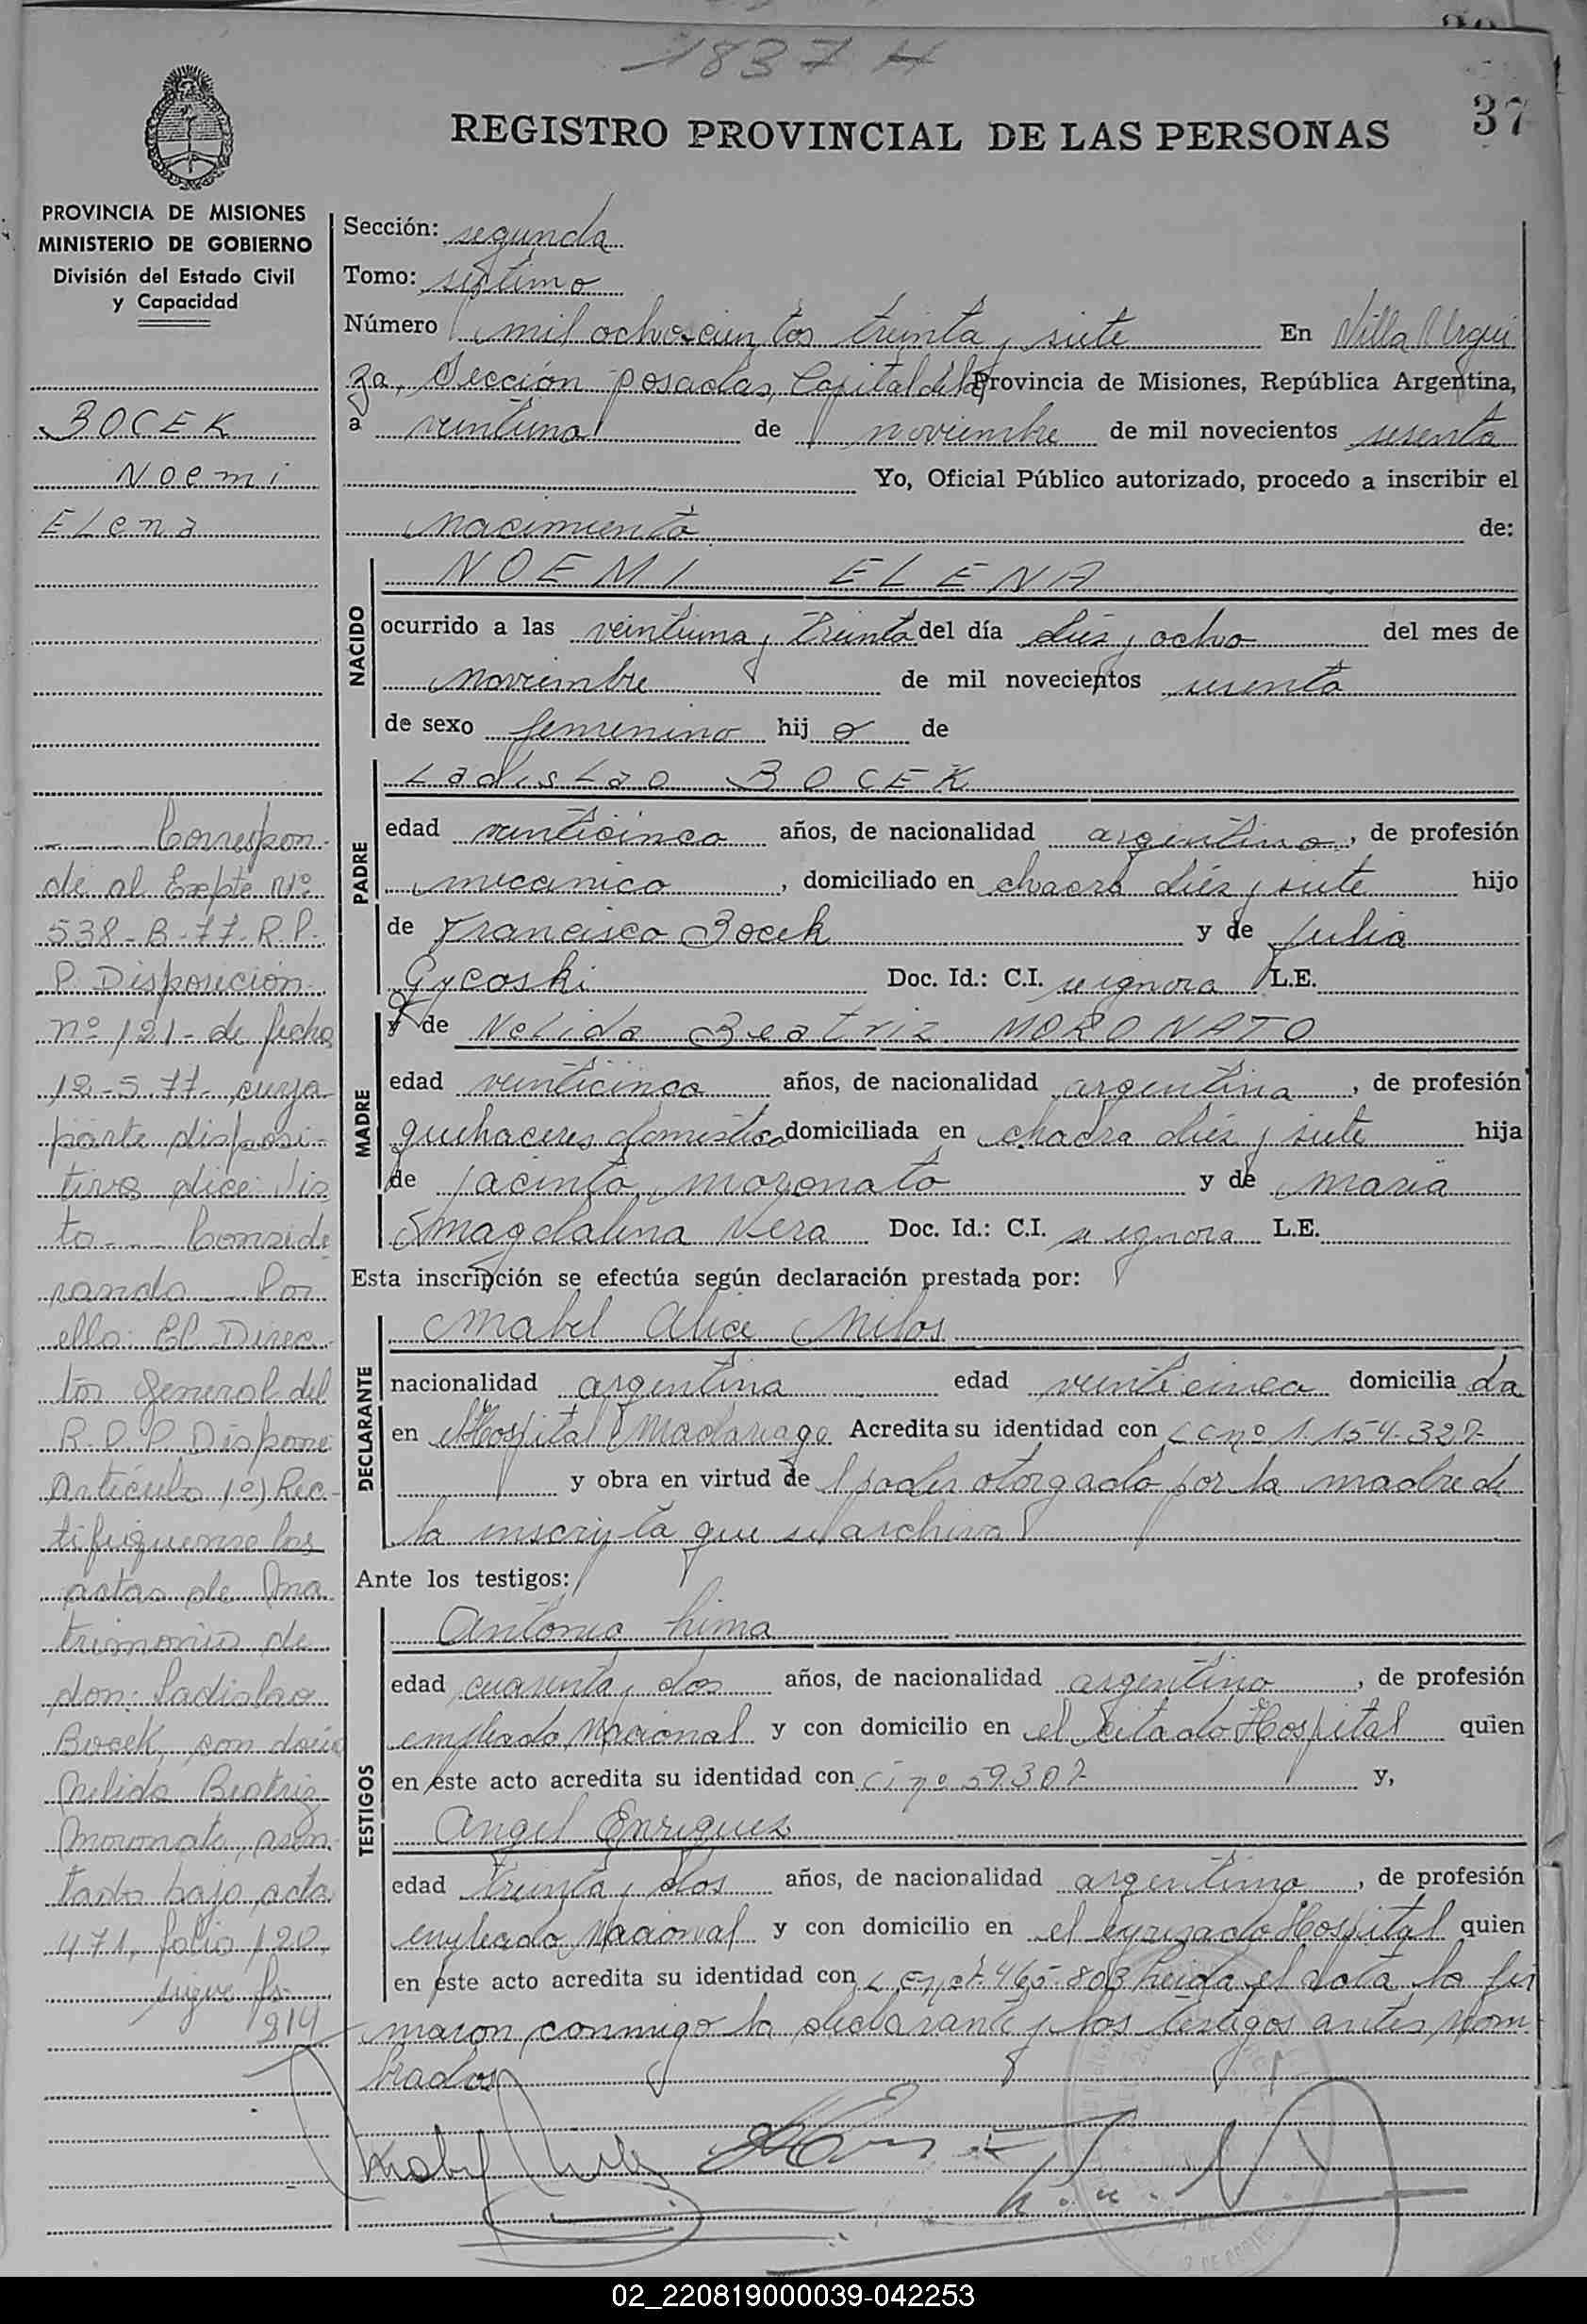 1837 H
37
REGISTRO PROVINCIAL DE LAS PERSONAS
PROVINCIA DE MISIONES
MINISTERIO DE GOBIERNO
División del Estado Civil
y Capacidad
BOCEK
Noemi
ELena
Correspon-
de al Expte Nº
538-B-77-R.P.
P. Disposición
nº 121- de fecha
12-5-77- cuya
parte disposi-
tiva dice: Vis
to --- Conside
rando --- Por
ello: El Direc-
tor General del
R.P.P. Dispone
Artículo 1º) Rec-
tifiquense las
actas de Ma
trimonio de
don: Ladislao
Bocek, con doña
Nelida Beatriz
Moronato, asen-
tado bajo acta
471, folio 120,
sigue fo-
214
Sección: segunda
Tomo: séptimo
Número mil ochocientos treinta y siete En Villa Urqui
za, Sección posadas, Capital de la Provincia de Misiones, República Argentina,
a veintiuno de noviembre de mil novecientos sesenta
Yo, Oficial Público autorizado, procedo a inscribir el
nacimiento de:
NACIDO
NOEMI ELENA
ocurrido a las veintiuna y treinta del día diez y ocho del mes de
noviembre de mil novecientos sesenta
de sexo femenino hij a de
PADRE
Ladislao BOCEK
edad veinticinco años, de nacionalidad argentino, de profesión
mecanico, domiciliado en chacra diez y siete hijo
de Francisco Bocek y de Julia
Gycoski Doc. Id.: C.I. se ignora L.E.
MADRE
y de Nelida Beatriz MORONATO
edad veinticinco años, de nacionalidad argentina, de profesión
quehaceres domesticos domiciliada en chacra diez y siete hija
de Jacinto Moronato y de Maria
Magdalena Vera Doc. Id.: C.I. se ignora L.E.
Esta inscripción se efectúa según declaración prestada por:
DECLARANTE
Mabel Alice Milos
nacionalidad argentina edad veinticinco domicilia da
en el Hospital Madariaga Acredita su identidad con LC nº 1.154.327
y obra en virtud de l poder otorgado por la madre de
la inscripta que se archiva
Ante los testigos:
TESTIGOS
Antonio Lima
edad cuarenta y dos años, de nacionalidad argentino, de profesión
empleado Nacional y con domicilio en el citado Hospital quien
en este acto acredita su identidad con ci nº 59307 y,
Angel Enriquez
edad treinta y dos años, de nacionalidad argentino, de profesión
empleado Nacional y con domicilio en el expresado Hospital quien
en este acto acredita su identidad con 465.803 leida el acta la fir
maron conmigo la declarante y los testigos antes nom
brados
02_220819000039-042253